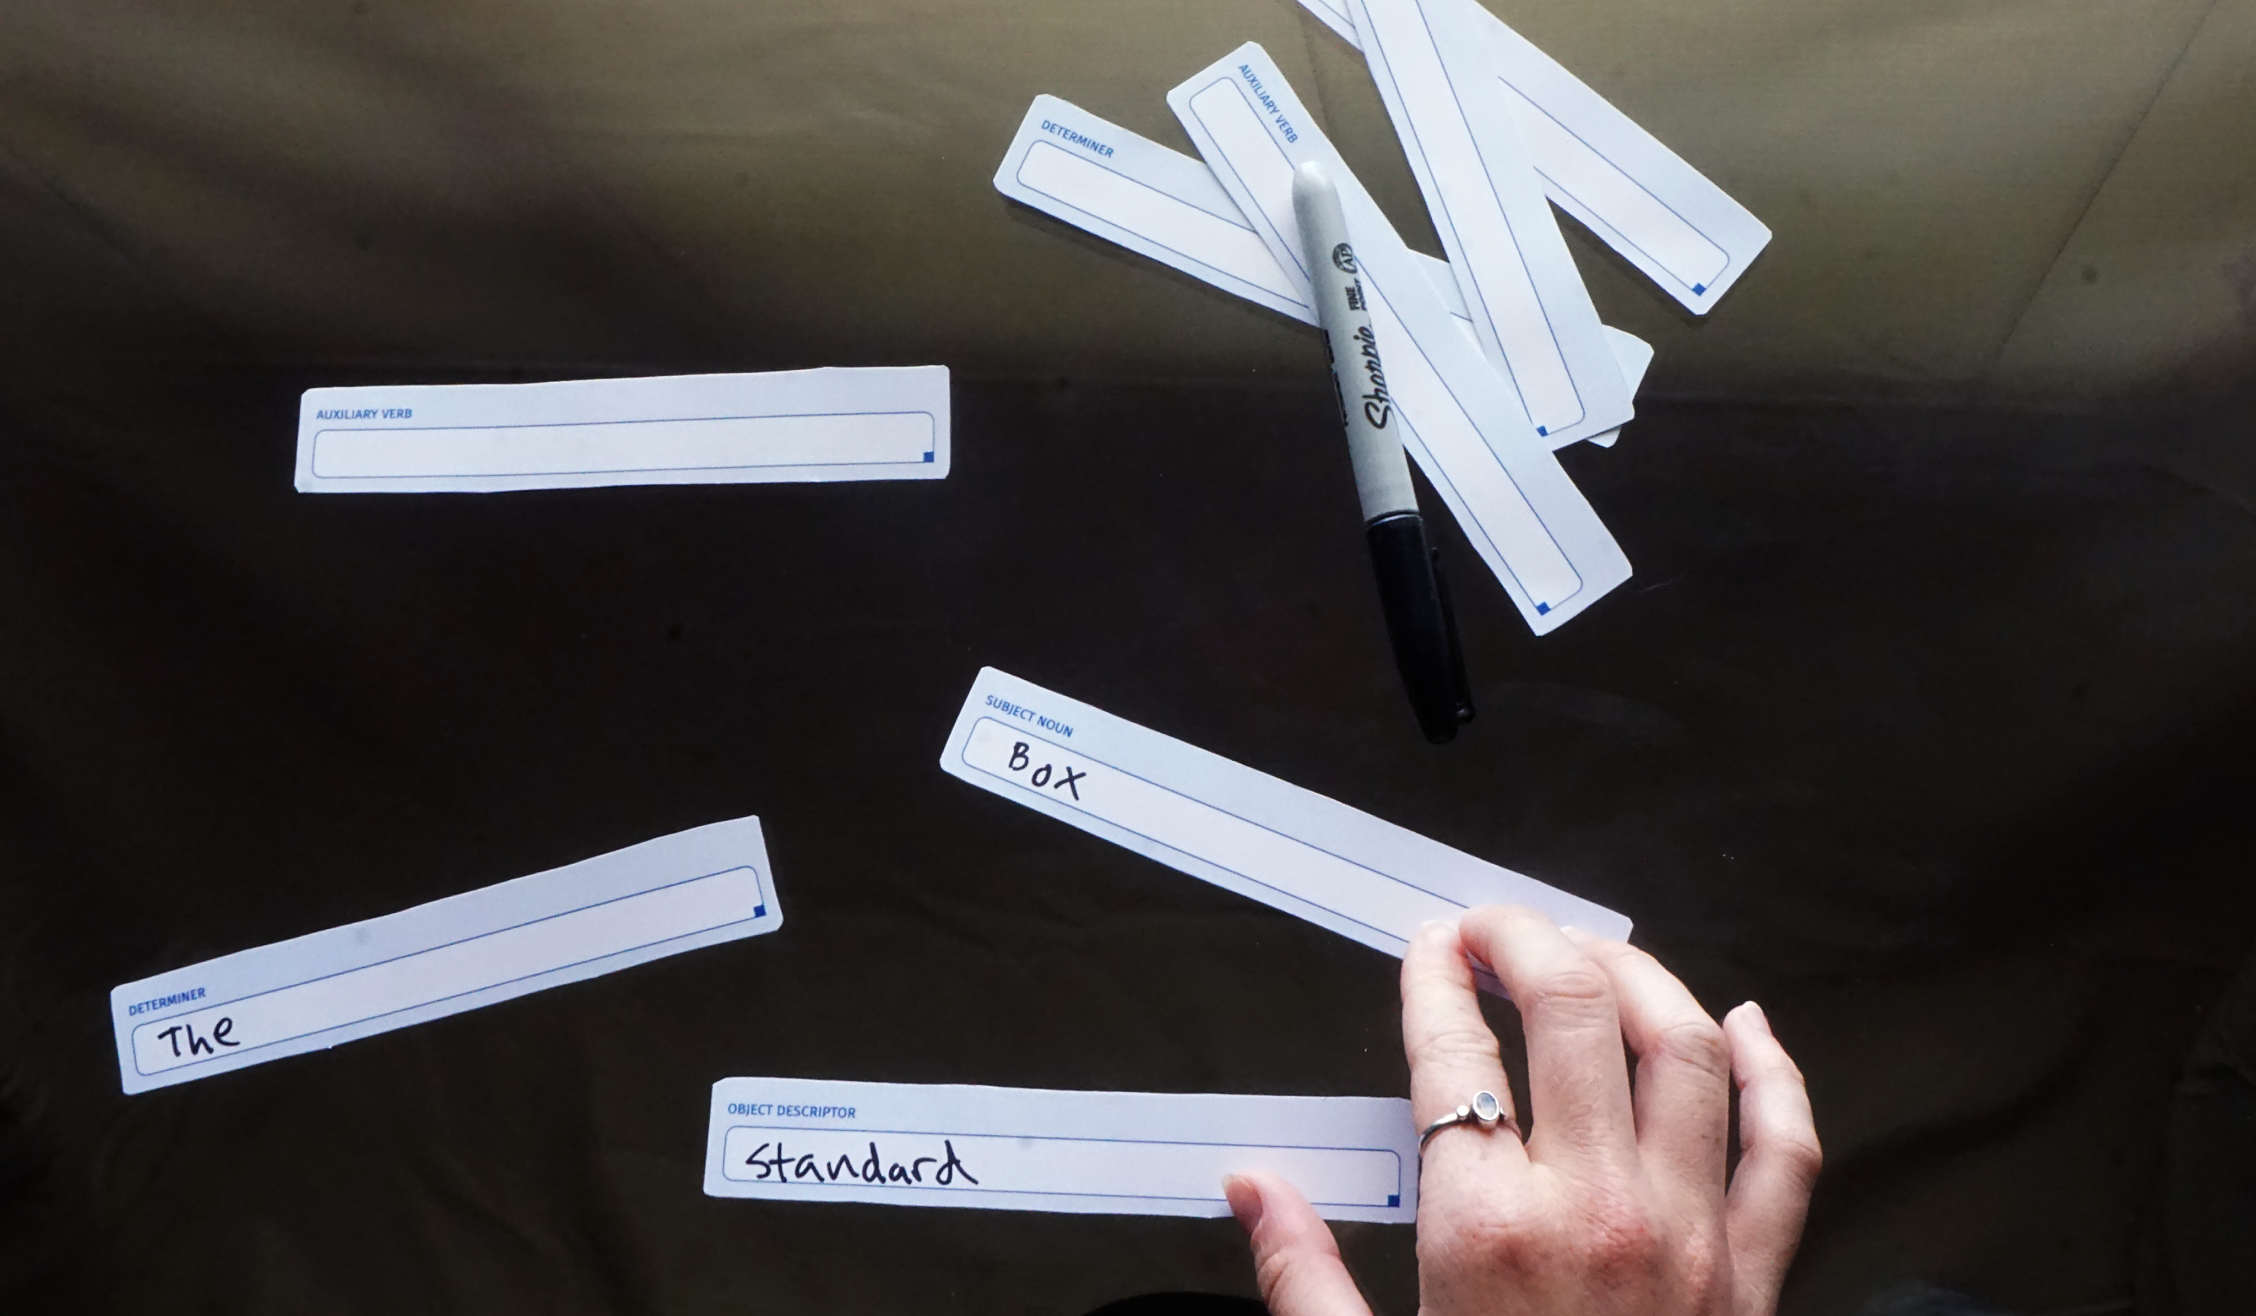 DETERMINER
AUXILIARY VERB
FINE
POINT
AP
Sharpie
AUXILIARY VERB
SUBJECT NOUN
Box
DETERMINER
The
OBJECT DESCRIPTOR
Standard